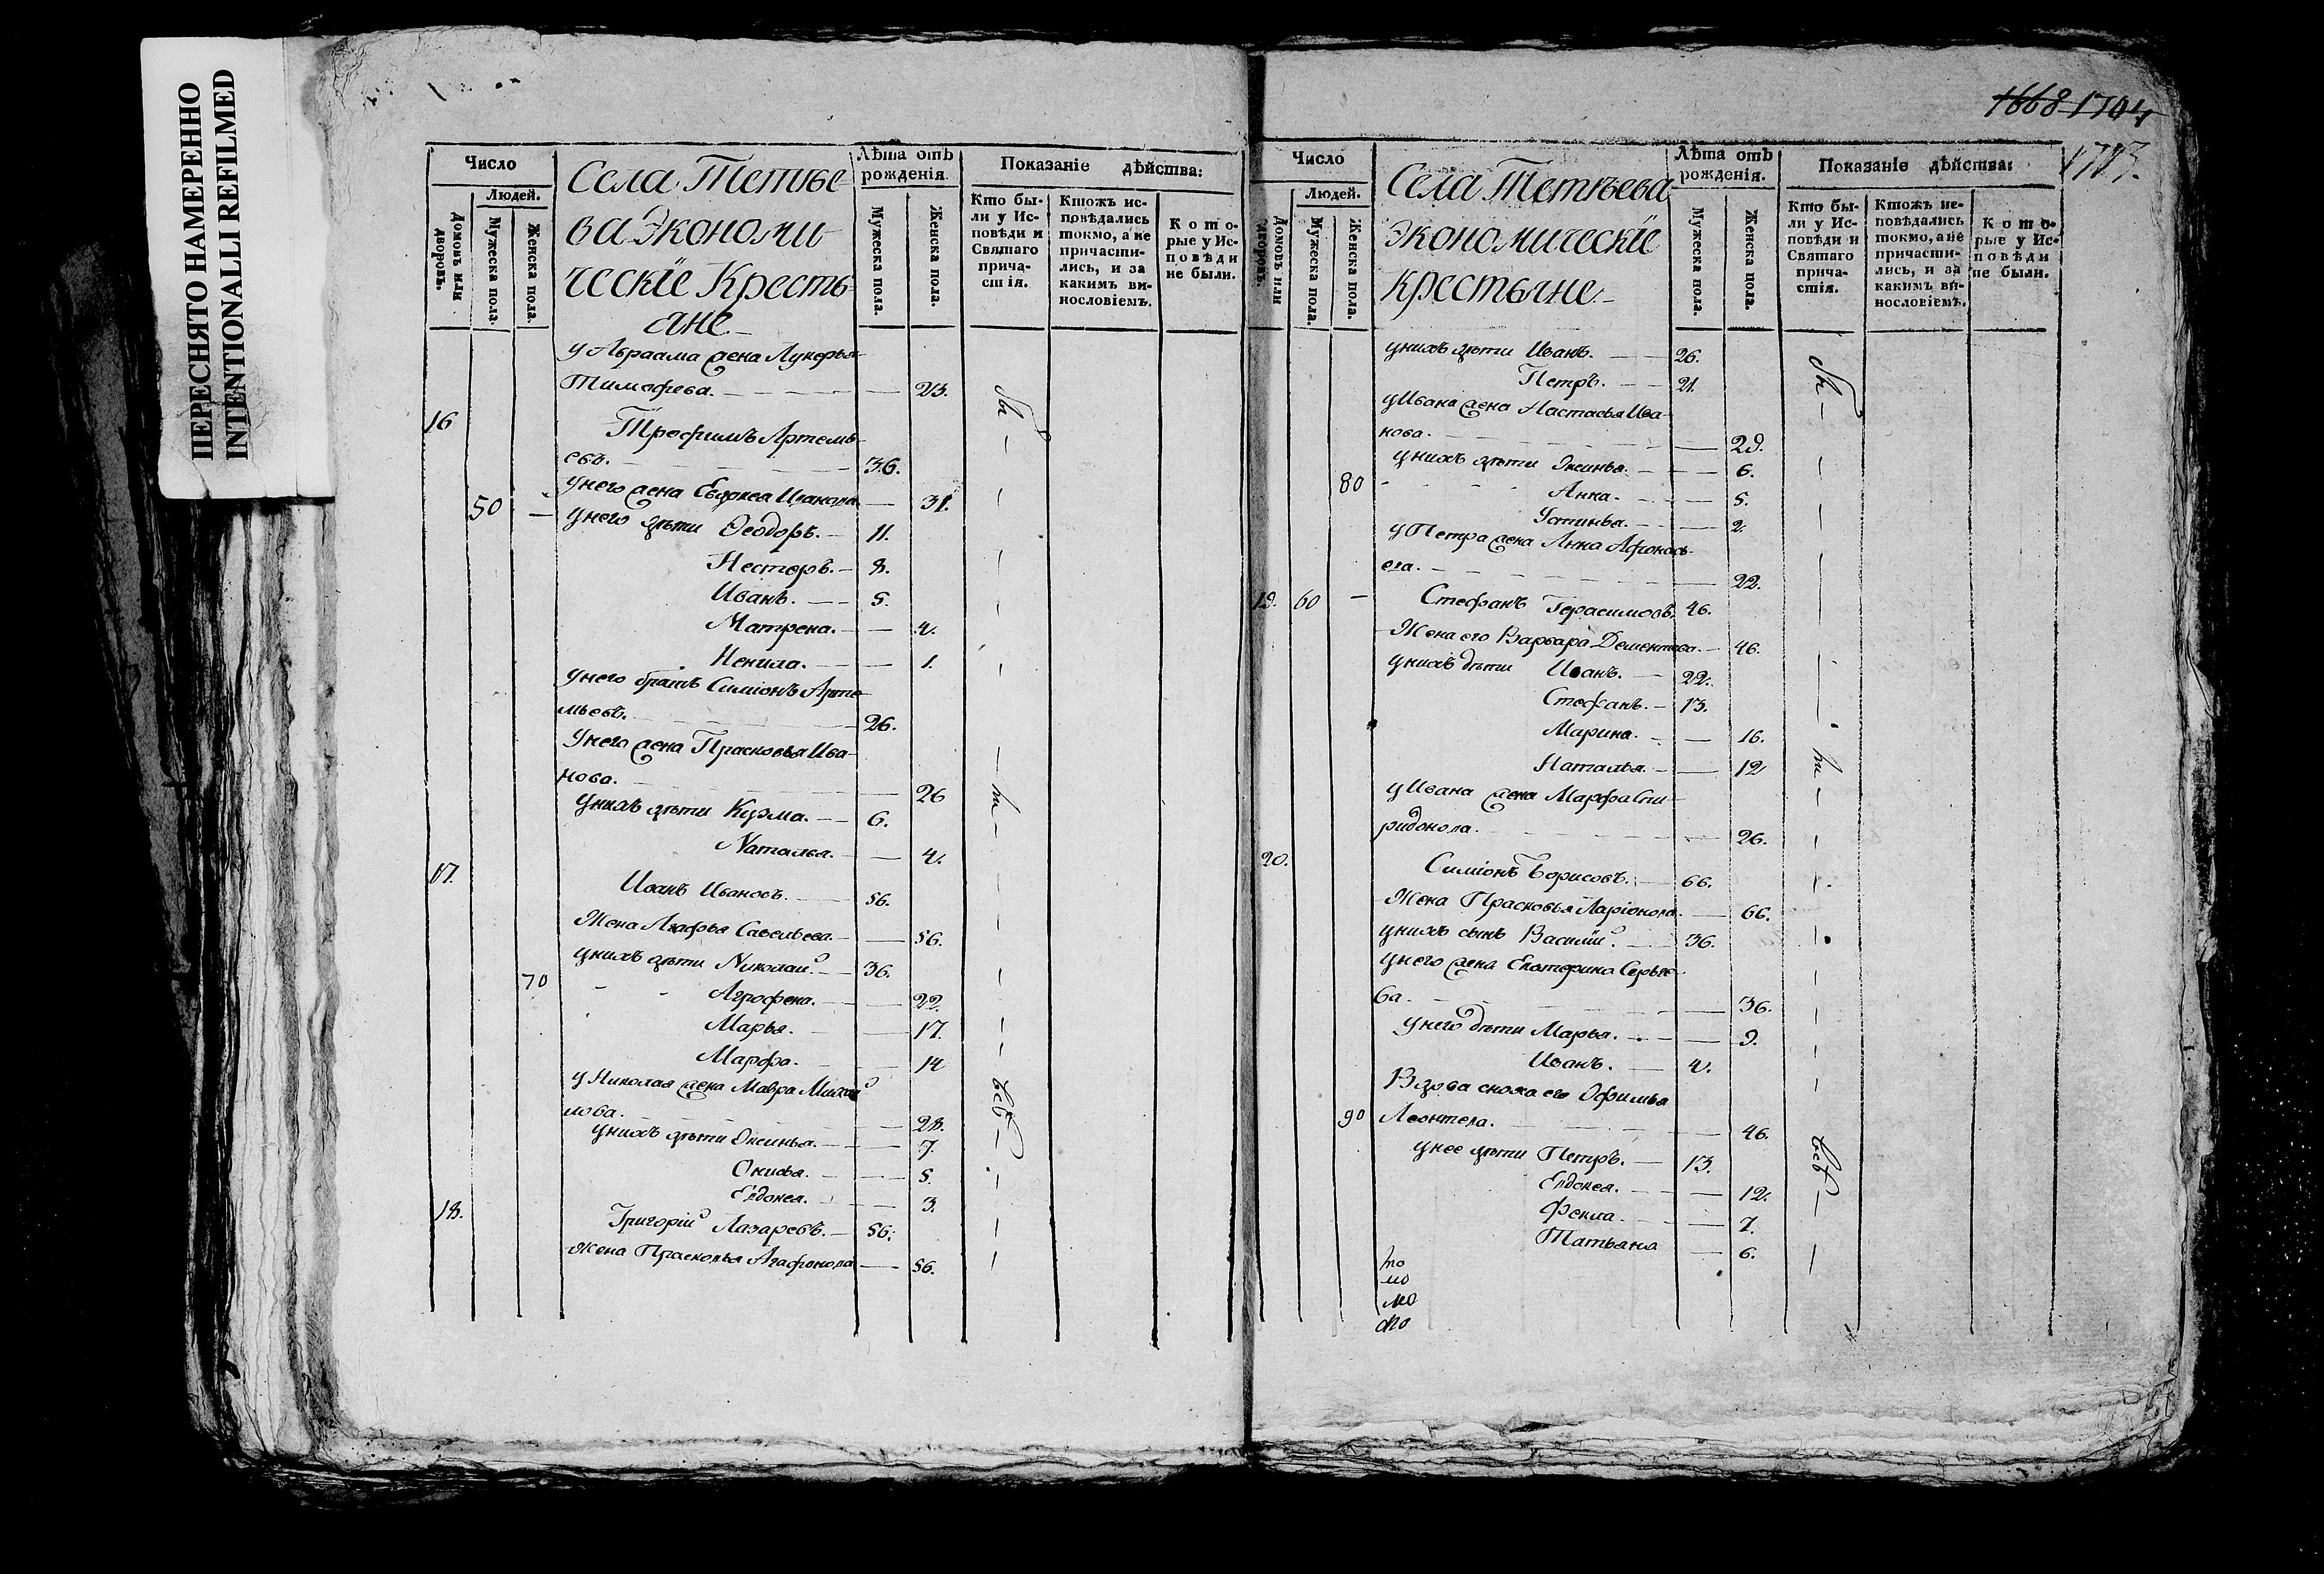 ПЕРЕСНЯТО НАМЕРЕННО
INTENTIONALLI REFILMED
Число
Людей.
Домовъ или дворовъ.
Мужеска пола.
Женска пола.
Села Тетѣе-
ва Экономи-
ческїе Кресть-
яне
Лѣта отъ рожденія.
Мужеска пола.
Женска пола.
Показаніе дѣйства:
Кто бы-
ли у Ис-
повѣди и
Святаго
прича-
стія.
Ктожъ ис-
повѣдались
токмо, а не
причасти-
лись, и за
какимъ ви-
нословіемъ.
Кото-
рые у Ис-
повѣди
не были.
у Авраама жена Лукерья
Тимофева. 23.
16 Трофимъ Артемь-
евъ. 36.
50 у него жена Евдокея Иванова 31.
у него дѣти Ѳеодоръ. 11.
Несторъ. 8.
Иванъ. 5.
Матрена. 4.
Ненила. 1.
у него братъ Симіонъ Арте-
мьевъ. 26.
У него жена Прасковья Ива-
нова. 26
у нихъ дѣти Кузма. 6.
Наталья. 4.
17. Иванъ Ивановъ. 56.
Жена Агафья Савельева. 56.
у нихъ дѣти Николай. 36.
70 Агрофена. 22.
Марья. 17.
Марфа. 14
у Николая жена Мавра Михай
лова. 28.
у нихъ дѣти Оксинья. 7.
Онисья. 5.
Евдокея. 3.
18. Григорій Лазаревъ. 56.
Жена Прасковья Агафонова 56.
бы
т
всѣ
1668 1704
1713.
Число
Людей.
Домовъ или дворовъ.
Мужеска пола.
Женска пола.
Села Тетѣева
Экономическїе
крестьяне
Лѣта отъ рожденія.
Мужеска пола.
Женска пола.
Показаніе дѣйства:
Кто бы-
ли у Ис-
повѣди и
Святаго
прича-
стія.
Ктожъ ис-
повѣдались
токмо, а не
причасти-
лись, и за
какимъ ви-
нословіемъ.
Кото-
рые у Ис-
повѣди
не были.
у нихъ дѣти Иванъ. 26.
Петръ. 21.
у Ивана жена Настасья Ива-
нова. 29.
у нихъ дѣти Оксинья. 6.
80 Анна. 5.
Устинья. 2.
у Петра жена Анна Афонась-
ева. 22.
19. 60 Стефанъ Герасимовъ. 46.
Жена его Варвара Дементева. 46.
у нихъ дѣти Иванъ. 22.
Стефанъ. 13.
Марина. 16.
Наталья. 12
у Ивана жена Марфа Спи-
ридонова. 26.
20. Симіонъ Борисовъ. 66.
Жена Прасковья Ларіонова. 66.
у нихъ сынъ Василій. 36.
у него жена Екатерина Сергѣе-
ва. 36.
у него дѣти Марья. 9.
Иванъ. 4.
Вдова сноха его Офимья
90 Леонтева. 46.
у нее дѣти Петръ. 13.
Евдокея. 12.
Фекла. 7.
Татьяна 6.
бы
т
всѣ